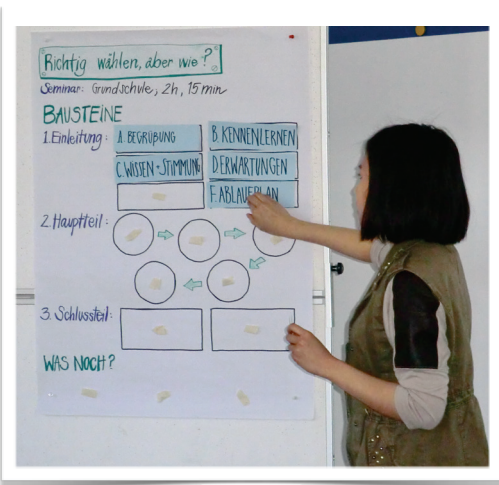 Richtig wählen, aber wie?
Seminar: Grundschule, 2h, 15 min
BAUSTEINE
1. Einleitung:
A. BEGRÜßUNG
B. KENNENLERNEN
C. WISSEN + STIMMUNG
D. ERWARTUNGEN
F. ABLAUFPLAN
2. Hauptteil:
3. Schlussteil:
WAS NOCH?